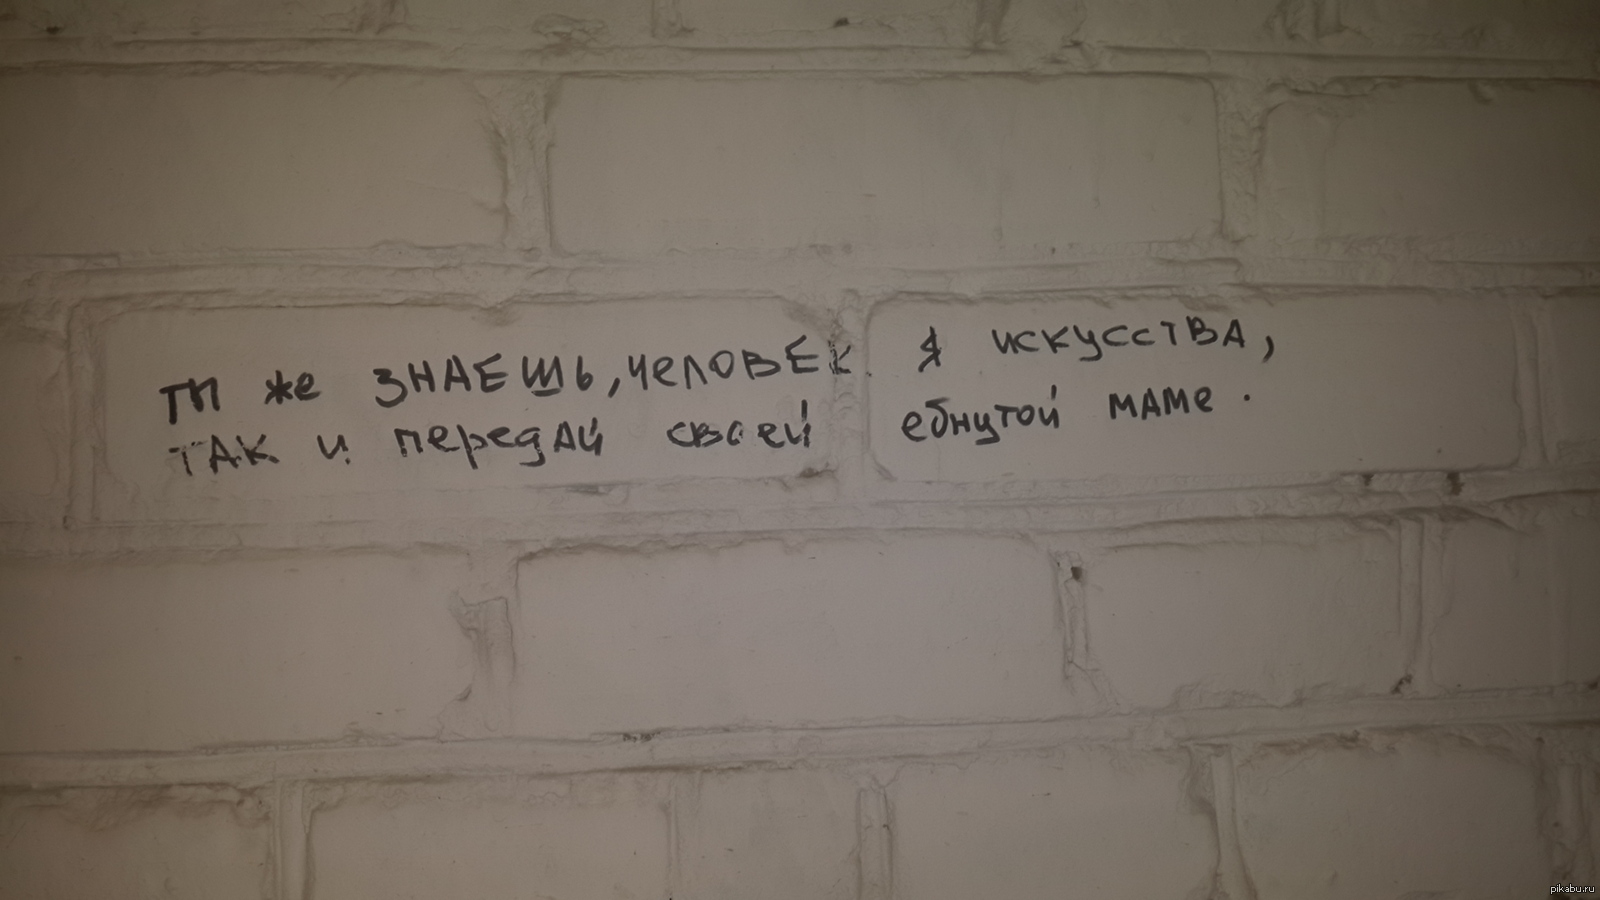 ты же ЗНАЕШЬ, человек я искусства,
ТАК и передай своей ебнутой маме.
pikabu.ru